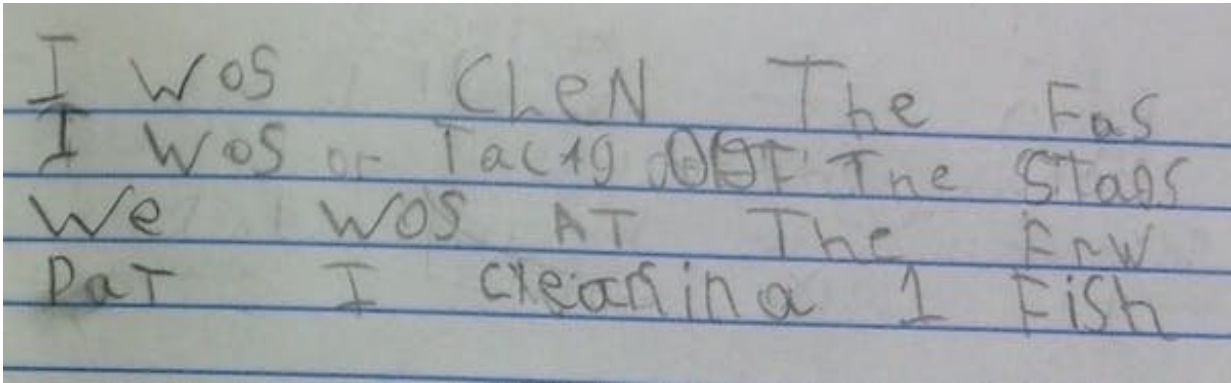 I WOS CLeN The Fas
I WOS or Tac19 OUT The STags
We WOS AT The FrW
PaT I cleanina 1 FiSh